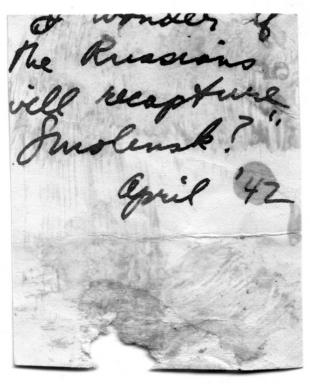 I wonder if
the Russians
will recapture
Smolensk?"
April '42